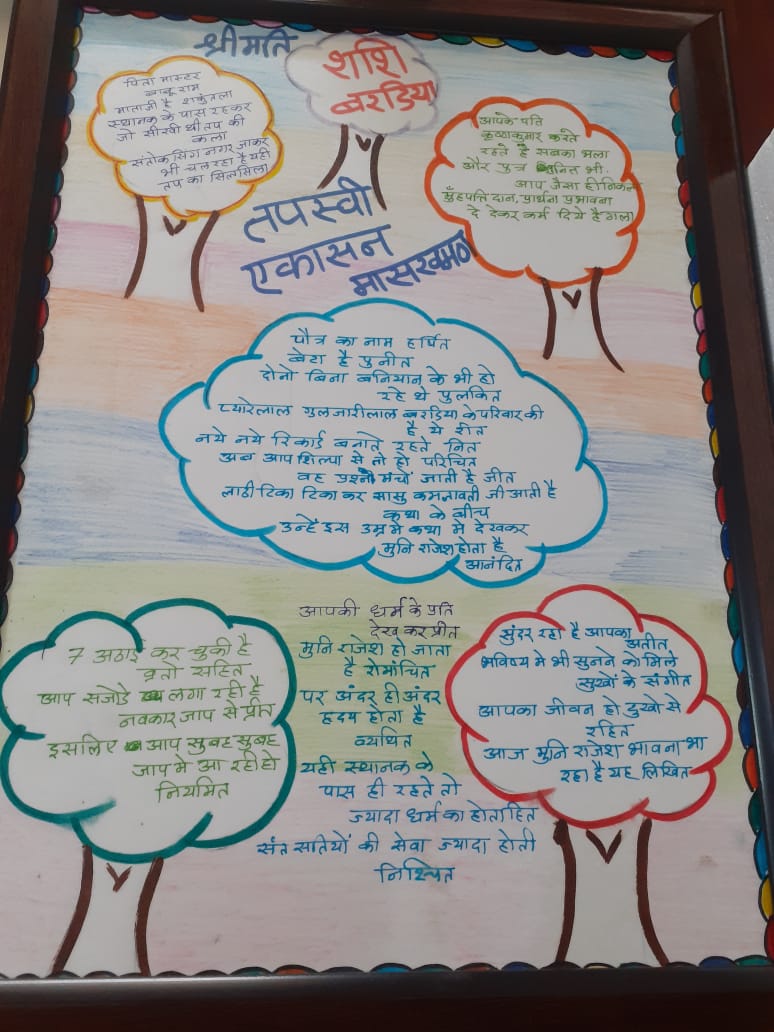 श्रीमति
शशि
बरडिया
पिता मास्टर
बाबू राम
माताजी है शकुंतला
स्थानक के पास रहकर
जो सीखी थी तप की
कला
संतोक सिंग नगर जाकर
भी चल रहा है यही
तप का सिलसिला
आपके पति
कृष्णकुमार करते
रहते है सबका भला
और पुत्र पुनित भी
आप जैसा ही निकला
मुँहपत्ति दान, प्रार्थना प्रभावना
दे देकर कर्म दिये है गला
तपस्वी
एकासन
मासखमण
पौत्र का नाम हर्षित
बेटा है पुनीत
दोनो बिना बनियान के भी हो
रहे थे पुलकित
प्यारेलाल गुलजारीलाल बरडिया के परिवार की
है ये रीत
नये नये रिकार्ड बनाते रहते नित
अब आप शिल्पा से तो हो परिचित
वह प्रश्नो मंचों जाती है जीत
लाठी टिका टिका कर सासु कमलावती जी आती है
कथा के बीच
उन्हे इस उम्र मे कथा मे देखकर
मुनि राजेश होता है
आनंदित
आपकी धर्म के प्रति
देख कर प्रीत
मुनि राजेश हो जाता
है रोमांचित
पर अंदर ही अंदर
हृदय होता है
व्यथित
यही स्थानक के
पास ही रहते तो
ज्यादा धर्म का होता हित
संत सतियों की सेवा ज्यादा होती
निश्चित
7 अठाई कर चुकी है
व्रतो सहित
आप सजोडे लगा रही है
नवकार जाप से प्रीत
इसलिए आप सुबह सुबह
जाप मे आ रही हो
नियमित
सुंदर रहा है आपका
अतीत
भविष्य मे भी सुनने को मिले
सुखों के संगीत
आपका जीवन हो दुखो से
रहित
आज मुनि राजेश भावना भा
रहा है यह लिखित